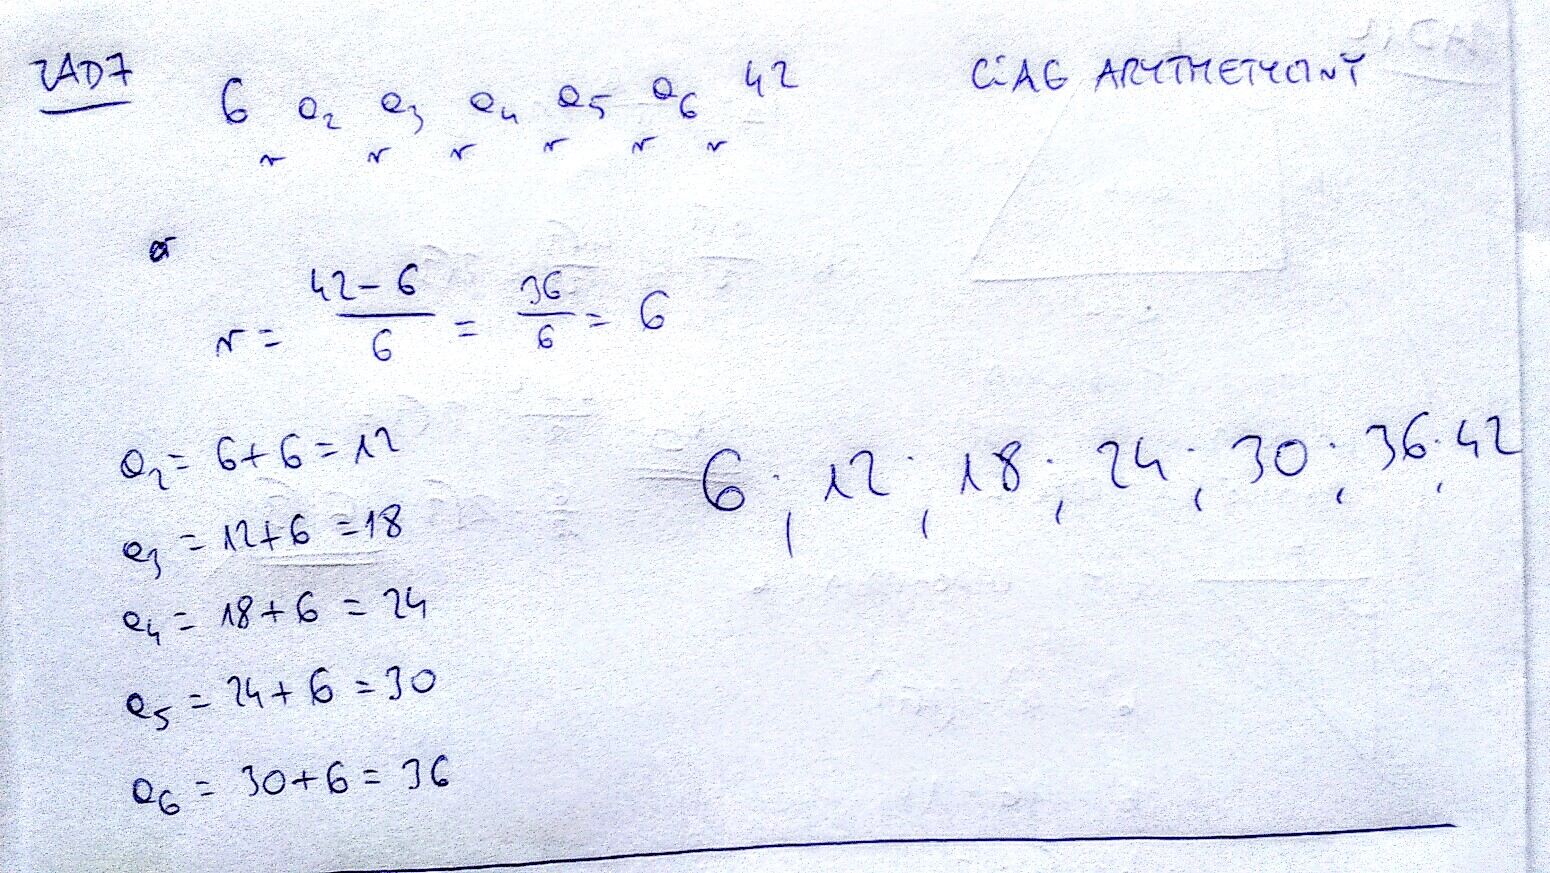 ZAD7
6 a2 a3 a4 a5 a6 42
CiAG ARYTMETYCZNY
r r r r r r
r = 42-6/6 = 36/6 = 6
a2 = 6+6=12
a3 = 12+6=18
a4 = 18+6=24
a5 = 24+6=30
a6 = 30+6=36
6; 12; 18; 24; 30; 36; 42